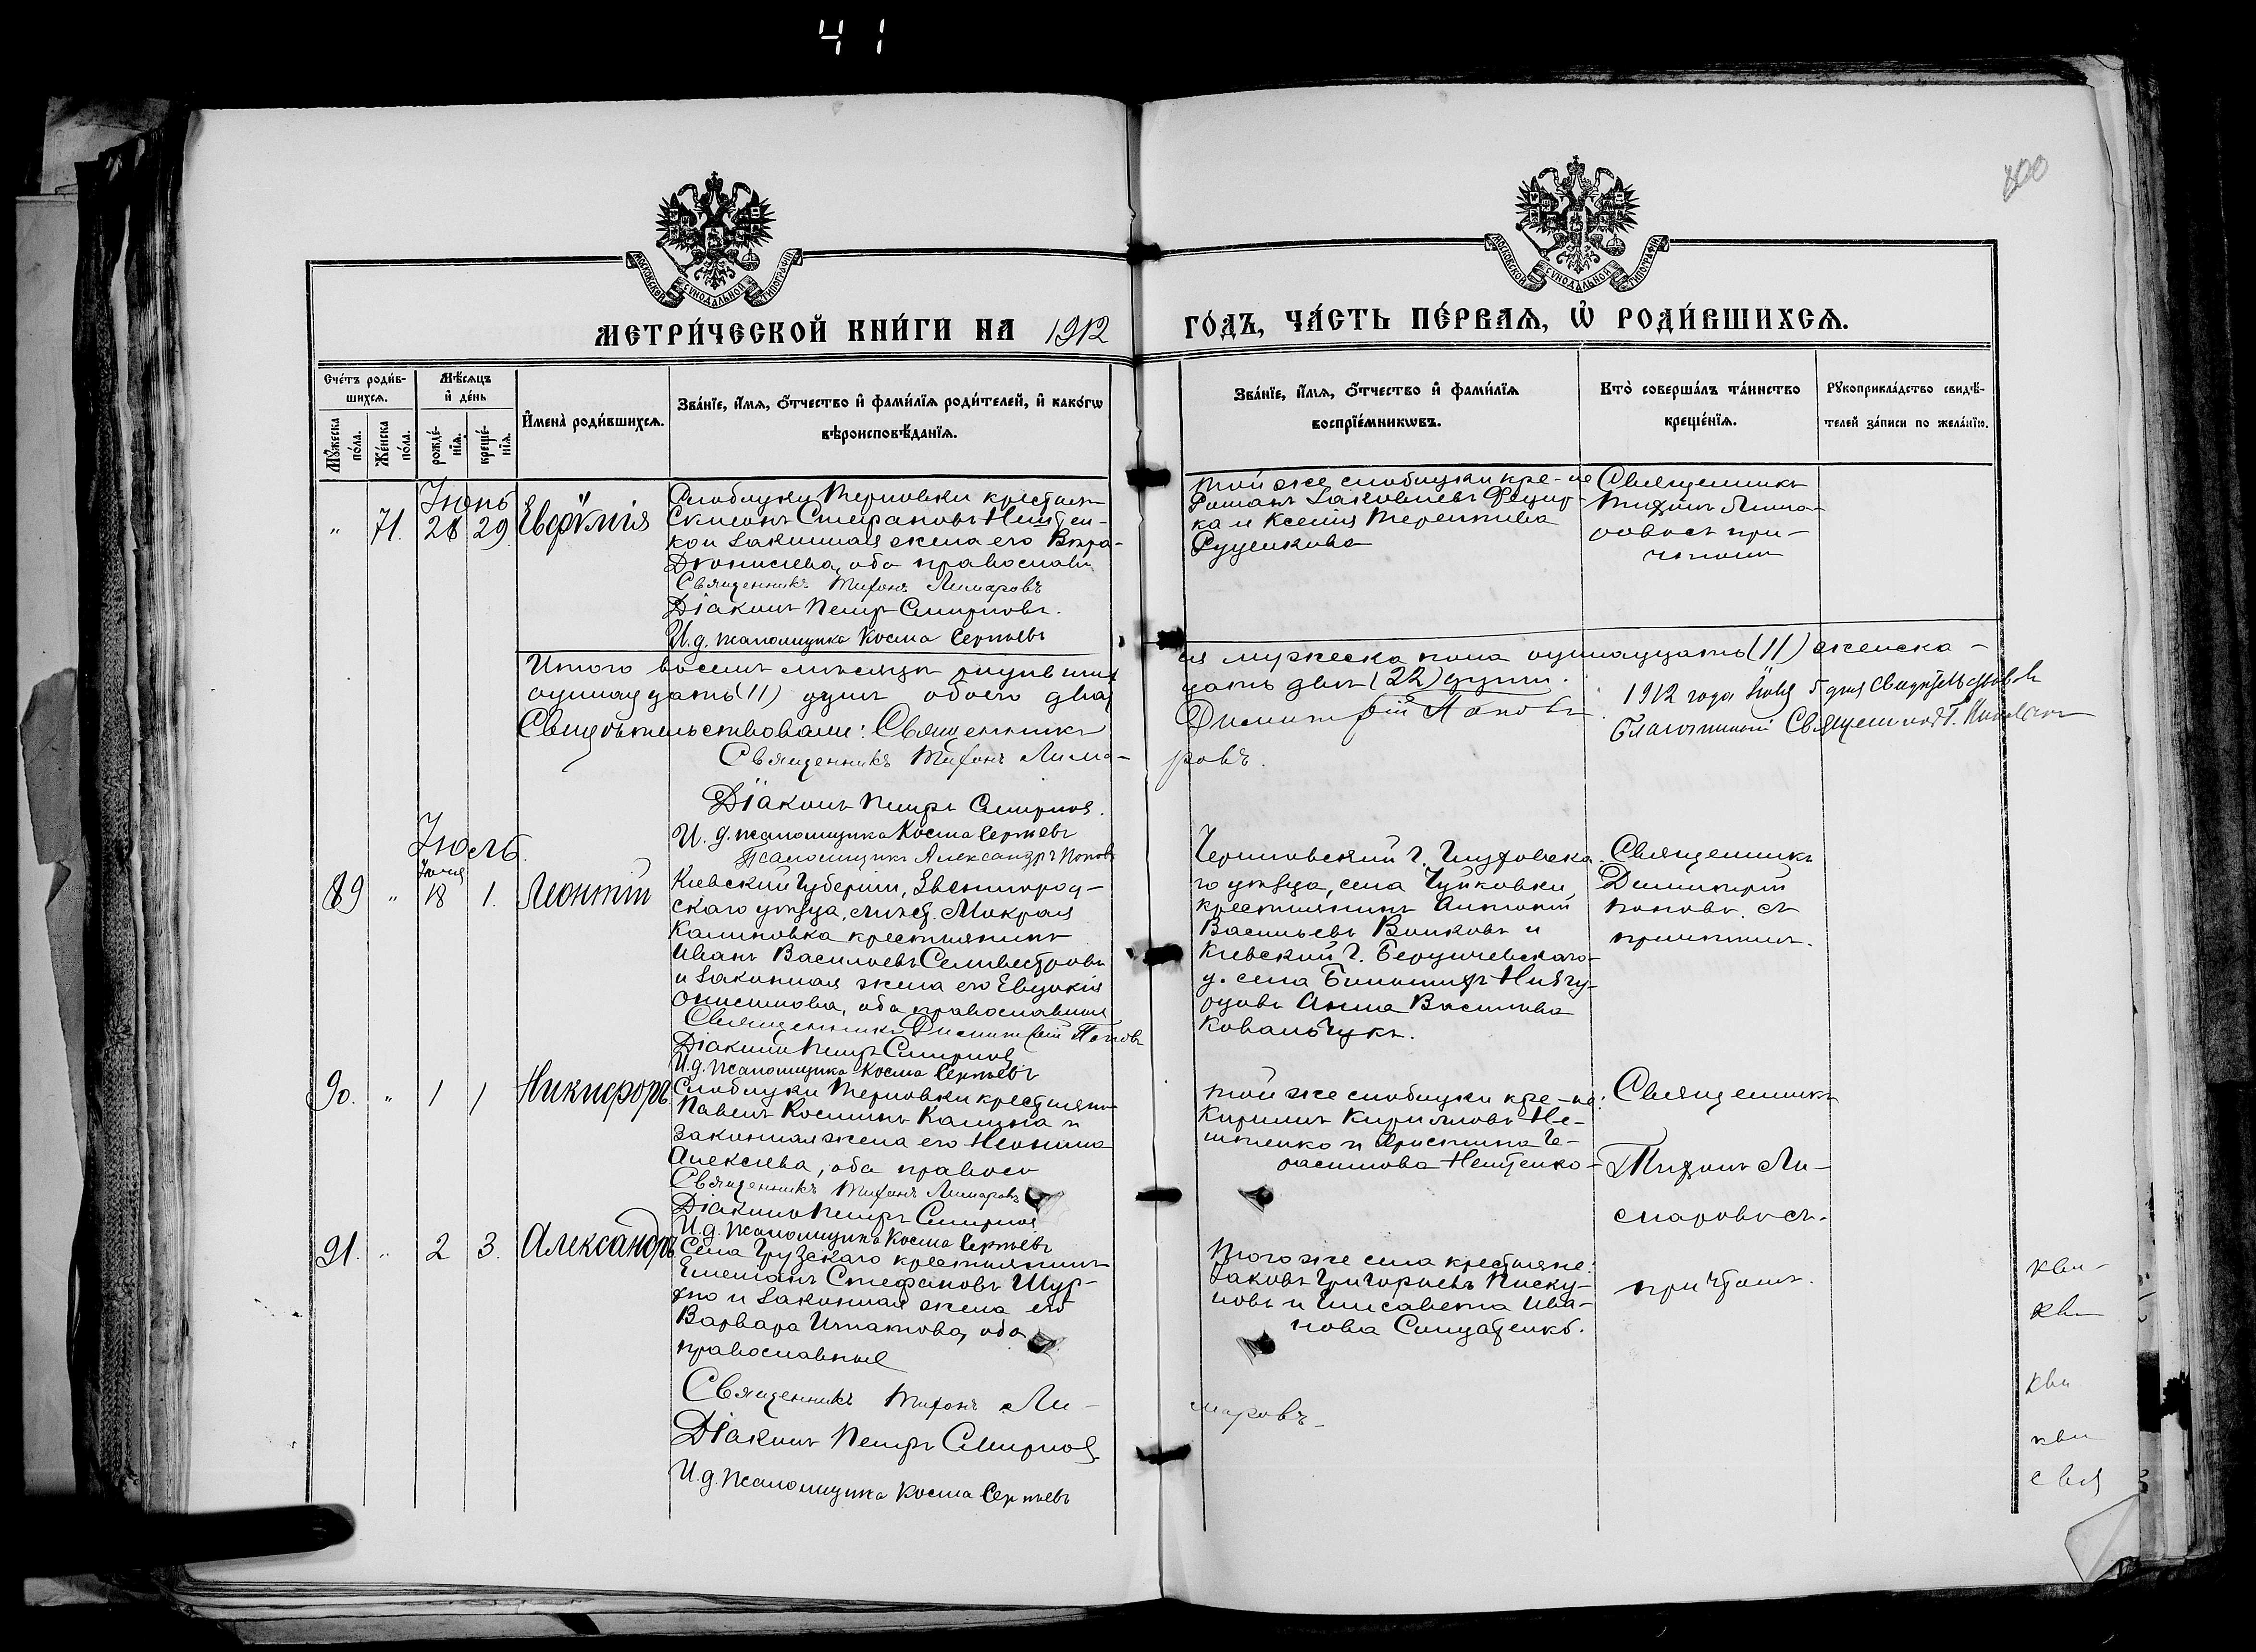 41
100
МОСКОВСКОЙ СѴНОДАЛЬНОЙ ТИПОГРАФІИ
МОСКОВСКОЙ СѴНОДАЛЬНОЙ ТИПОГРАФІИ
МЕТРИ́ЧЕСКОЙ КНИ́ГИ НА 1912
ГО́ДЪ, ЧА́СТЬ ПЕ́РВАѦ, Ѡ҆ РОДИ́ВШИХСѦ.
Сче́тъ роди́в-
шихсѧ.
Мꙋ́жеска по́ла.
Же́нска по́ла.
Мѣ́сѧцъ
и҆ де́нь
рожде́-
нїѧ.
креще́-
нїѧ.
И҆мена̀ роди́вшихсѧ.
Зва́нїе, и҆́мѧ, ѻ҆́тчество и҆ фами́лїѧ роди́телей, и҆ како́гѡ
вѣроисповѣ́данїѧ.
Зва́нїе, и҆́мѧ, ѻ҆́тчество и҆ фами́лїѧ
воспрїе́мникѡвъ.
Кто̀ соверша́лъ та́инство
креще́нїѧ.
Рꙋкоприкла́дство свидѣ́-
телей за́писи по жела́нїю.
Іюнь
" 71. 28 29. Евфѵмія
Слободки Терновки крестьян
Стефановъ
законная жена его
Діонисіева, оба православн
Священникъ Тихонъ Лимаровъ
Діаконъ Петръ Смирновъ.
И.д. псаломщика Косма Сергѣевъ
Той же слободки кре-не
Романъ Іаковлевъ
ка и Ксенія Терентіева
Священникъ
Тихонъ Лима-
ровъ съ при-
чтомъ
Итого мѣсяцѣ
одиннадцать (11) душъ обоего два
Свидѣтельствовали: Священникъ
Священникъ Тихонъ Лима-
Діаконъ Петръ Смирнов.
И. д. псаломщика Косма Сергѣевъ
Псаломщикъ Александръ Поповъ
ся мужеска пола одинадцать (11) женска-
цать двѣ (22) души.
Димитрій Поповъ
ровъ.
1912 года 5 дня свидѣтельствовалъ
Благочинный Священникъ
Іюль.
Іюня
89 " 18 1. Леонтій
Кіевской Губерніи, Звенигород-
скаго уѣзда, Мокрая
Калиновка крестьянинъ
Иванъ Васильевъ Селивестровъ
и законная жена его Евдокія
Онисимова, оба православные
Священникъ Димитрій Поповъ
Діаконъ Петръ Смирнов
И.д. псаломщика Косма Сергѣевъ
Черниговской г. Глуховска-
го уѣзда, села Чуйковки,
крестьянинъ Антоній
Васильевъ Волковъ и
Кіевской г. Бердичевскаго
у. села
Анна Васильева
Ковальчукъ.
Священникъ
Димитрій
Поповъ съ
причтомъ.
90. " 1 1 Никифоръ
Слободки Терновки крестьян
Павелъ Косминъ Калина и
законная жена его Неонила
Алексіева, оба правосл
Священникъ Тихонъ Лимаровъ
Діаконъ Петръ Смирнов
И.д. псаломщика Косма Сергѣевъ
Той же слободки кре-не:
Кириллъ Кирилловъ Не-
и Христина Ге-
расимова
Священникъ
Тихонъ Ли-
маровъ съ
причтомъ.
91. " 2 3. Александръ
Села Грузскаго крестьянинъ
Емельянъ Стефановъ Шур-
хно и законная жена его
Варвара Игнатова, оба
православные
Священникъ Тихонъ Ли-
Діаконъ Петръ Смирнов
И.д. псаломщика Косма Сергѣевъ
Того же села крестьяне:
Іаковъ Григорьевъ Писку-
новъ и Елисавета Ива-
нова
маровъ